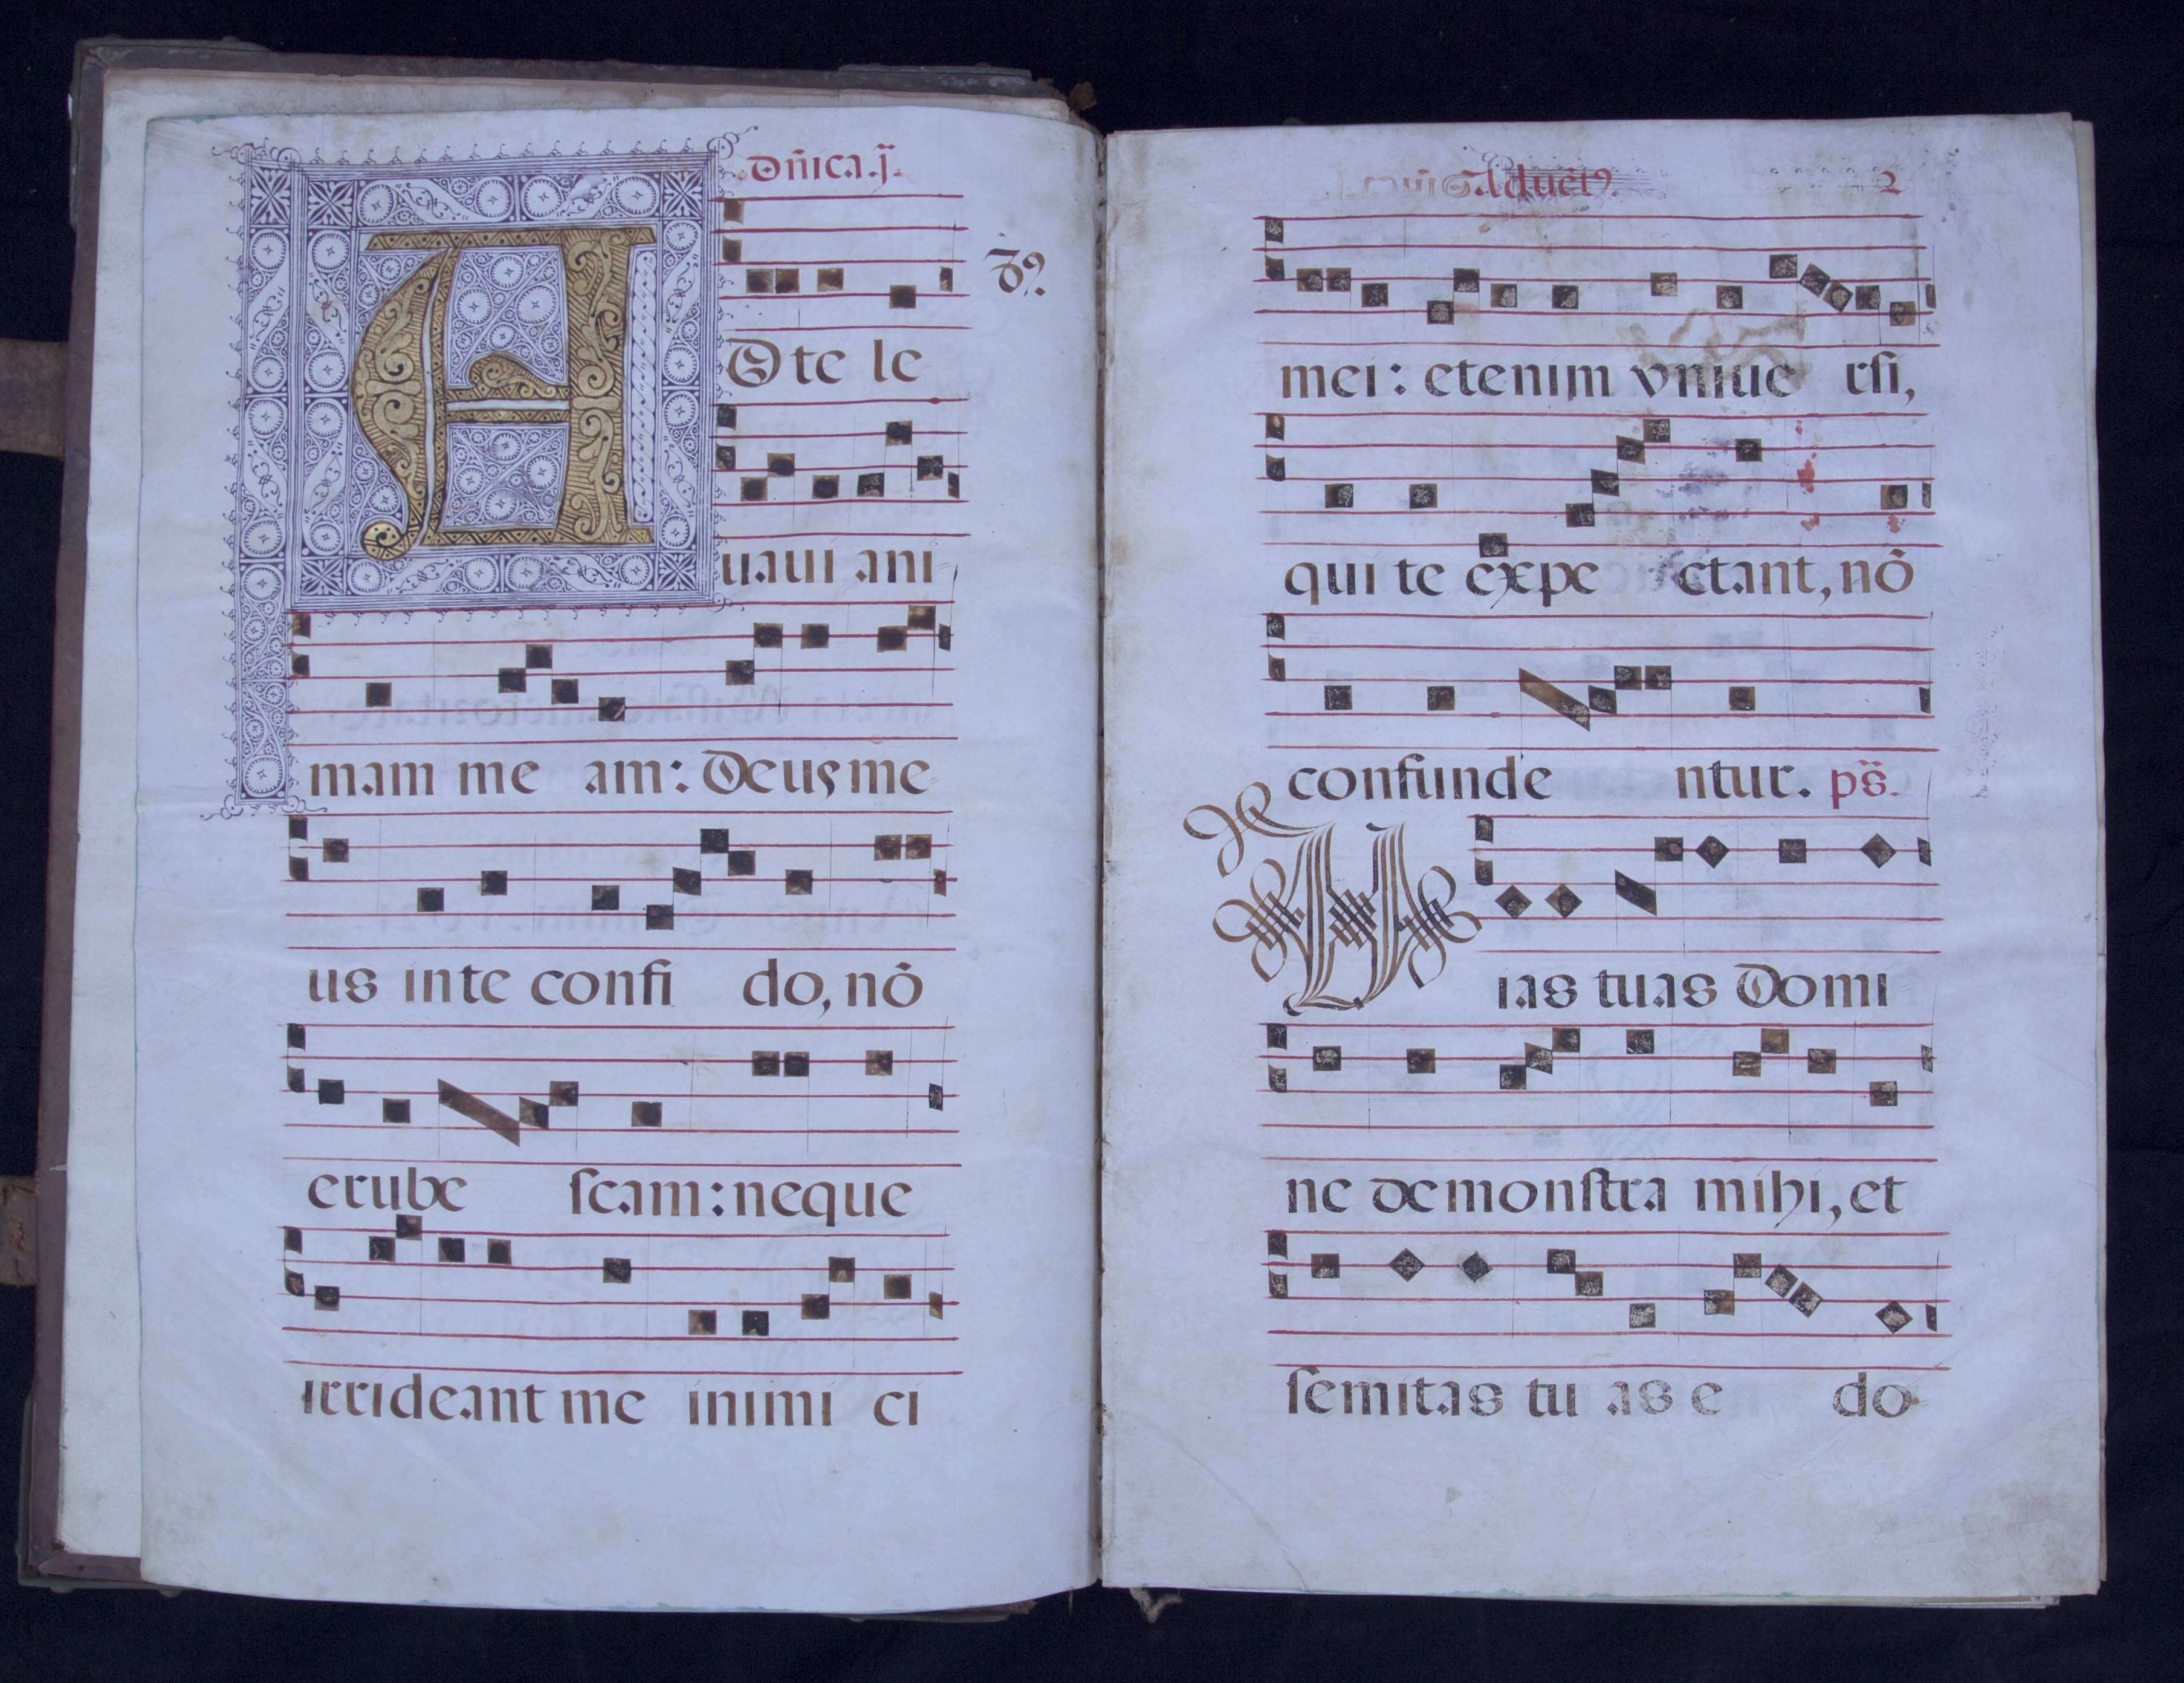 .Dñica.j̈.
A D te le
uaui ani
mam me am: Deus me
us in te confi do, nõ
erube ſcam: neque
irrideant me inimi ci
Aduẽtꝰ. 2
mei: etenim vniue rſi,
qui te expe ctant, nõ
confunde ntur. ps̈.
V ias tuas Domi
ne demonſtra mihi, et
ſemitas tu as e do